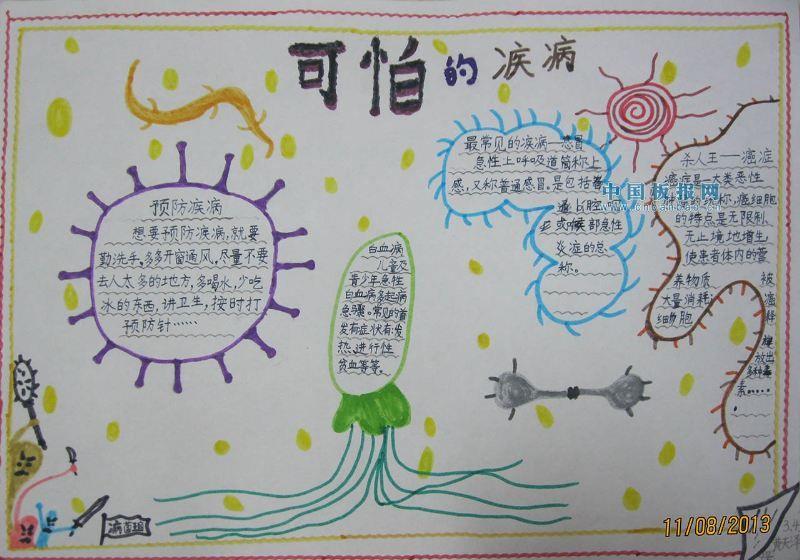 可怕的疾病
预防疾病
想要预防疾病,就要
勤洗手,多多开窗通风,尽量不要
去人太多的地方,多喝水,少吃
冰的东西,讲卫生,按时打
预防针……
白血病
儿童及
青少年急性
白血病多起病
急骤。常见的首
发有症状有:发
热、进行性
贫血等等。
最常见的疾病—感冒
急性上呼吸道简称上
感,又称普通感冒。是包括鼻
炎症的总
称。
杀人王——癌症
癌症是一大类恶性
的统称,癌细胞
的特点是无限制、
无止境地增生,
使患者体内的营
养物质
大量消耗;
被
癌
细胞
释
放出
多种毒
素……
。
中国板报网
11/08/2013
3.4